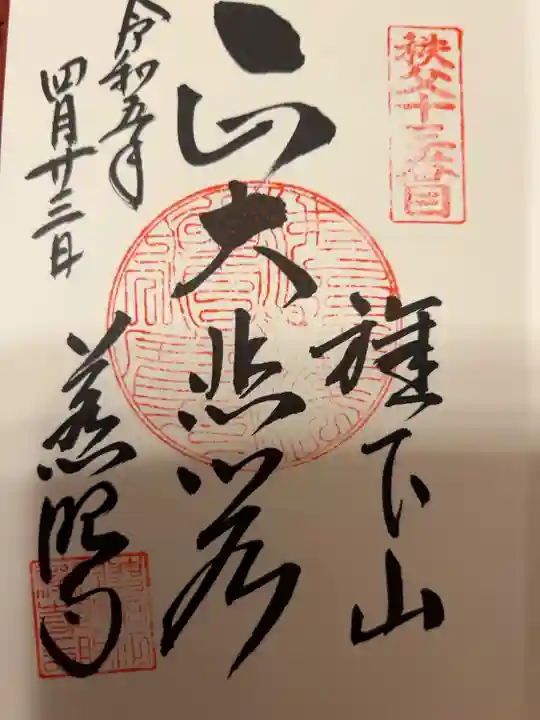 秩父十三番
旗下山
大悲
令和五年
四月廿三日
慈眼寺